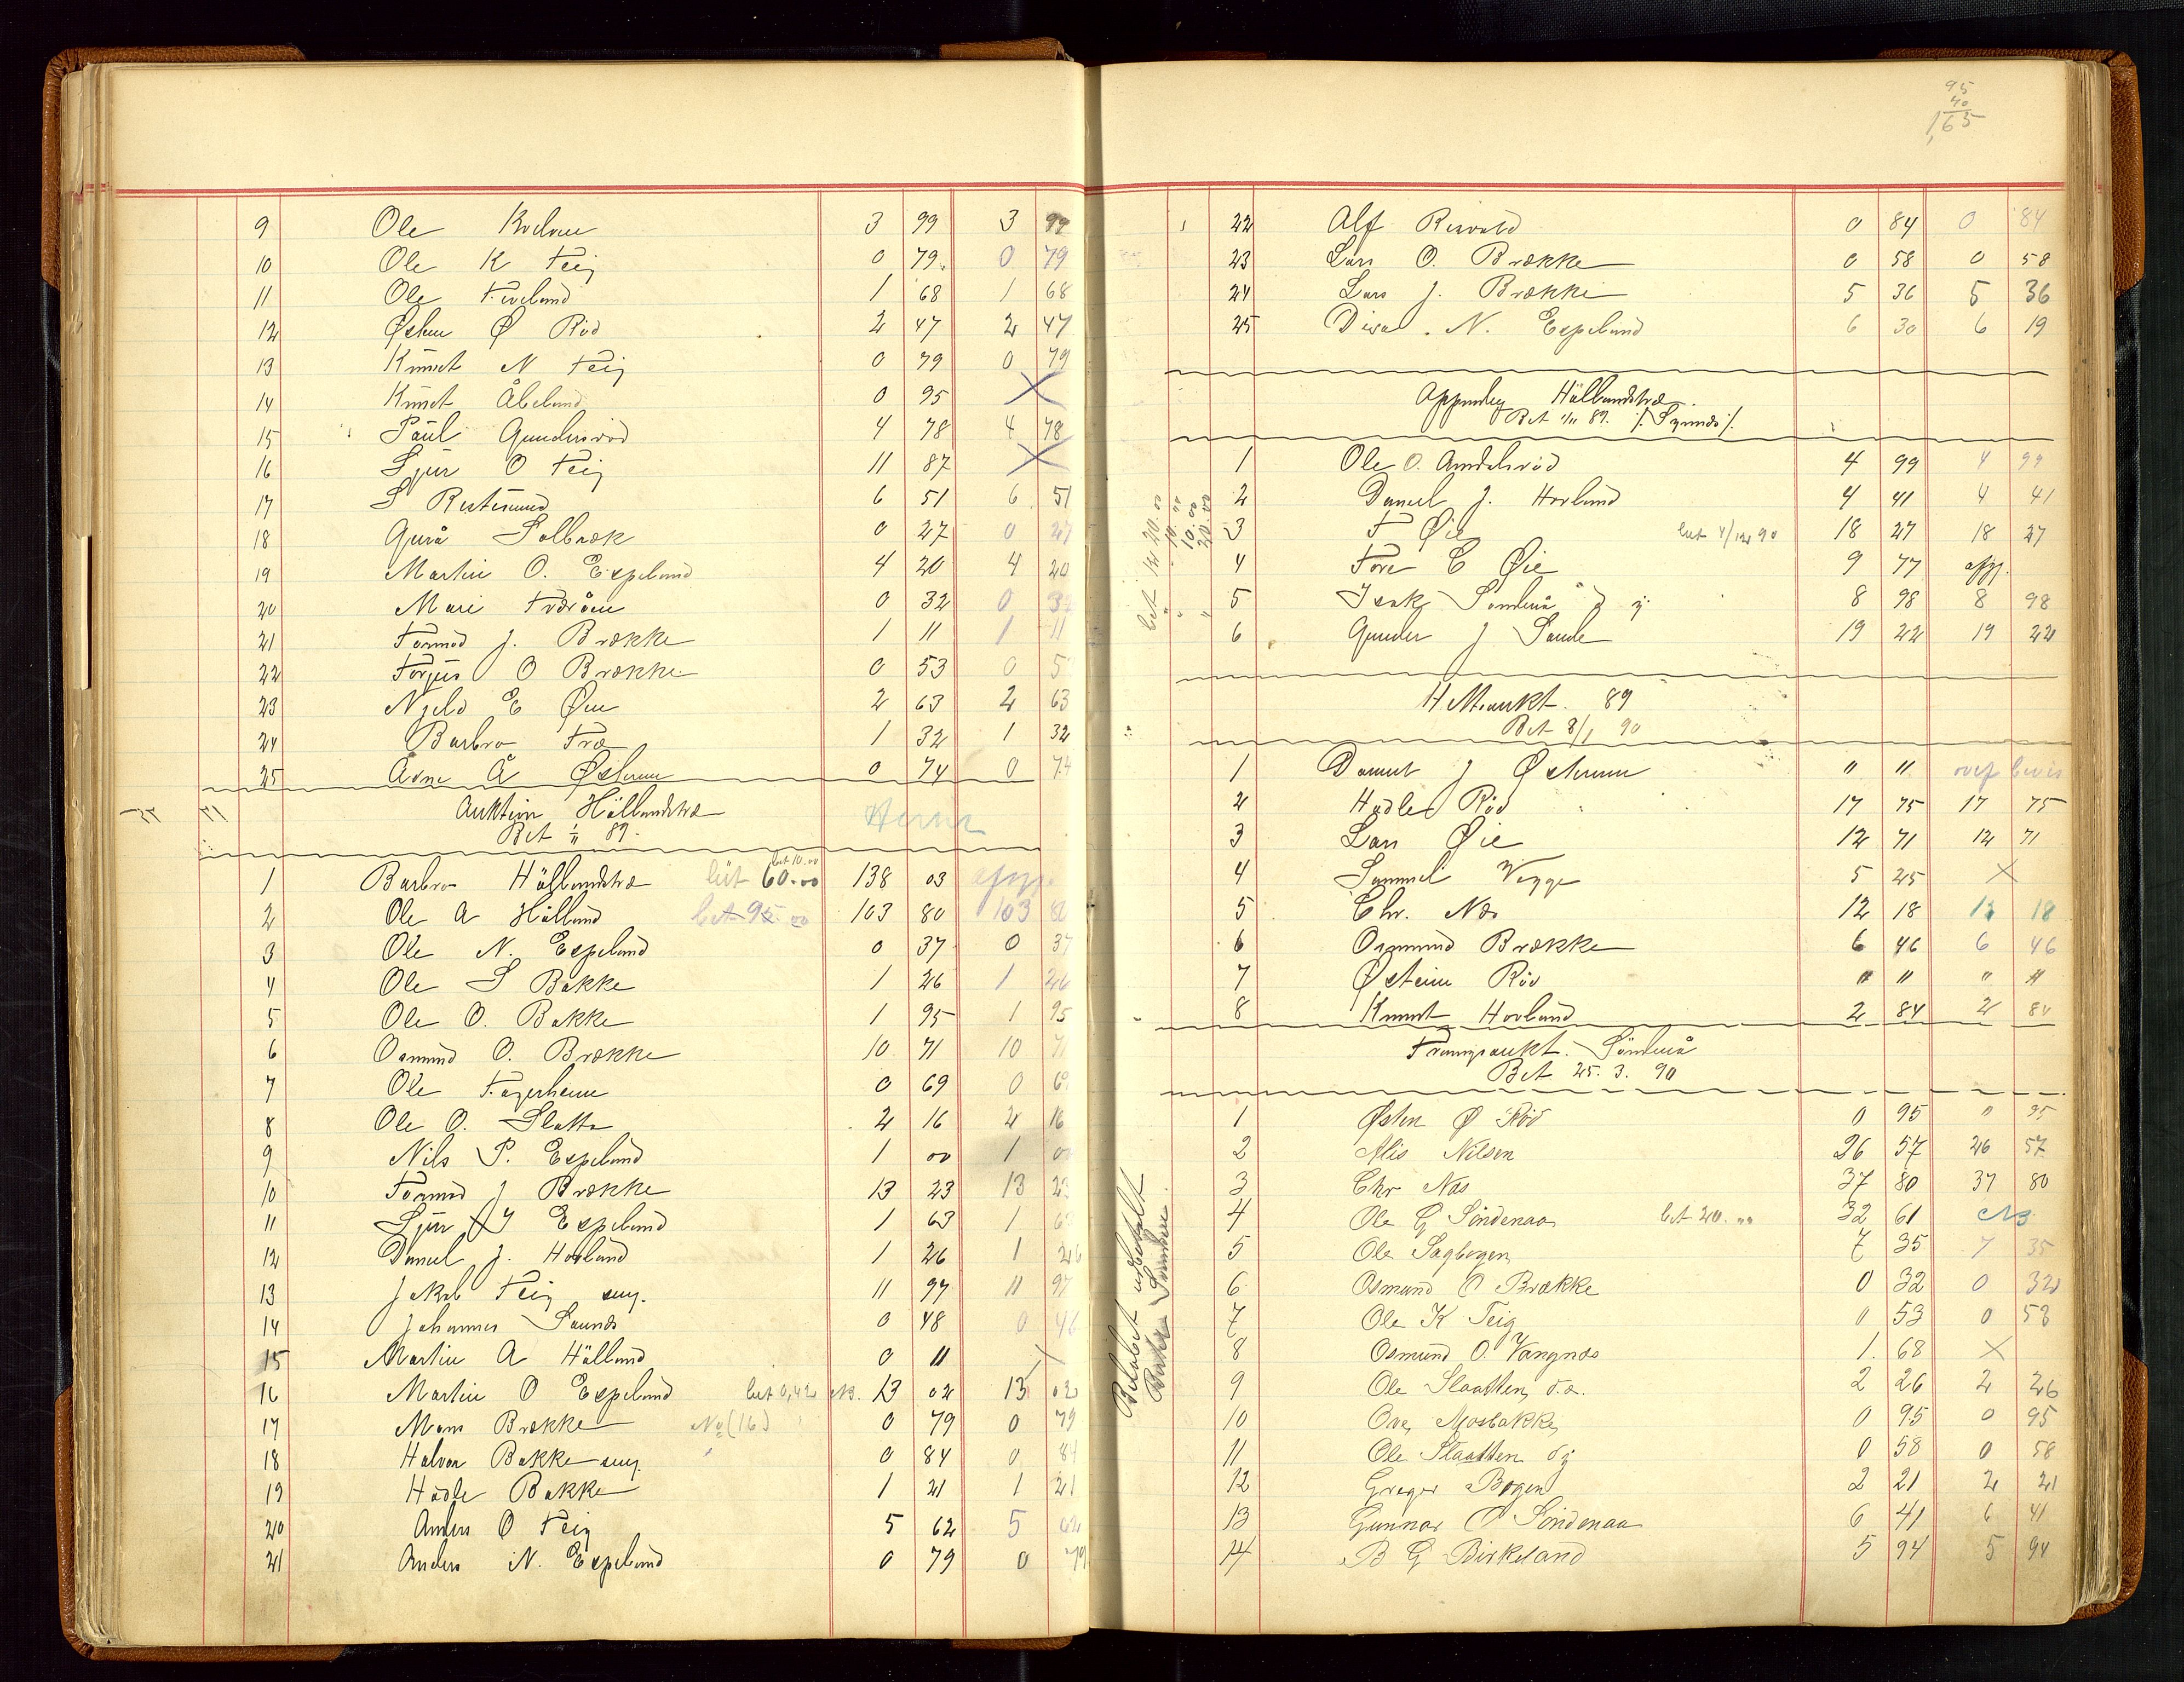 9 Ole 3 99 3 99
10 Ole K Teig 0 79 0 79
11 Ole Tveland 1 68 1 68
12 Østen Ø Röd 2 47 2 47
13 Knud N Teig 0 79 0 79
14 Knud Åbeland 0 95 X
15 Paul Gundersröd 4 78 4 78
16 Sjur O Teig 11 87 X
17 S Ristesund 6 51 6 51
18 Guro Solbræk 0 27 0 27
19 Martin O. Espeland 4 20 4 20
20 Mari 0 32 0 32
21 Tormod J. Brække 1 11 1 11
22 Torjus O Brække 0 53 0 5
23 E Øen 2 63 2 63
24 Barbro Træ 1 32 1 32
25 Å 0 74 0 74
Auktion Hållandstræ
Bet 1/11 89.
bet 10.00
1 Barbro Hållandstræ bet 60.00 138 03
2 Ole A Hålland bet 95.00 103 80 103 80
3 Ole N. Espeland 0 37 0 37
4 Ole S Bakke 1 26 1 26
5 Ole O. Bakke 1 95 1 95
6 Osmund O. Brække 10 71 10 71
7 Ole Fagerheim 0 69 0 69
8 Ole O. Slatta 2 16 2 16
9 Nils P. Espeland 1 00 1 00
10 Tormod J Brække 13 23 13 23
11 Sjur Espeland 1 63 1 63
12 Daniel J. Hovland 1 26 1 26
13 Jakob Teig 11 97 11 97
14 Johannes 0 48 0 48
15 Martin A Hålland 0 11 X
16 Martin O Espeland bet 0,42 13 02 13 02
17 Mons Brække No (16) 0 79 0 79
18 Halvor Bakke 0 84 0 84
19 Hådle Bakke 1 21 1 21
20 Anders O Teig 5 62 5 62
21 Anders N. Espeland 0 79 0 79
95
40
1,65
22 Alf 0 84 0 84
23 Lars O. Brække 0 58 0 58
24 Lars J. Brække 5 36 5 36
25 N. Espeland 6 30 6 19
Hållandstræ
Bet 1/11 89.
1 Ole O. Amdalsröd 4 99 4 99
2 Daniel J. Hovland 4 41 4 41
3 T Øie bet 4/12 90 18 27 18 27
4 Tore E Øie 9 77
5 Isak Söndenå 8 98 8 98
6 Gunder J Sande 19 22 19 22
89
Bet 8/1 90
1 Daniel J " "
2 Hadle Röd 17 75 17 75
3 Lars Øie 12 71 12 71
4 Samuel 5 25 X
5 Chr. Næs 12 18 12 18
6 Osmund Brække 6 46 6 46
7 Østein Röd " " " "
8 Knut Hovland 2 84 2 84
Söndenå
Bet 25. 3. 90
1 Østen Ø Röd 0 95 0 95
2 Nilsen 26 57 26 57
3 Chr Næs 37 80 37 80
4 Ole G Söndenaa bet 20.00 32 61
5 Ole Sagbogen 7 35 7 35
6 Osmund O Brække 0 32 0 32
7 Ole K Teig 0 53 0 53
8 Osmund O. Vangnæs 1 68 X
9 Ole Slaatten 2 26 2 26
10 Ove Mosbakke 0 95 0 95
11 Ole Slaatten 0 58 0 58
12 Greger Bogen 2 21 2 21
13 Gunnar O Söndenaa 6 41 6 41
14 B G Birkeland 5 94 5 94